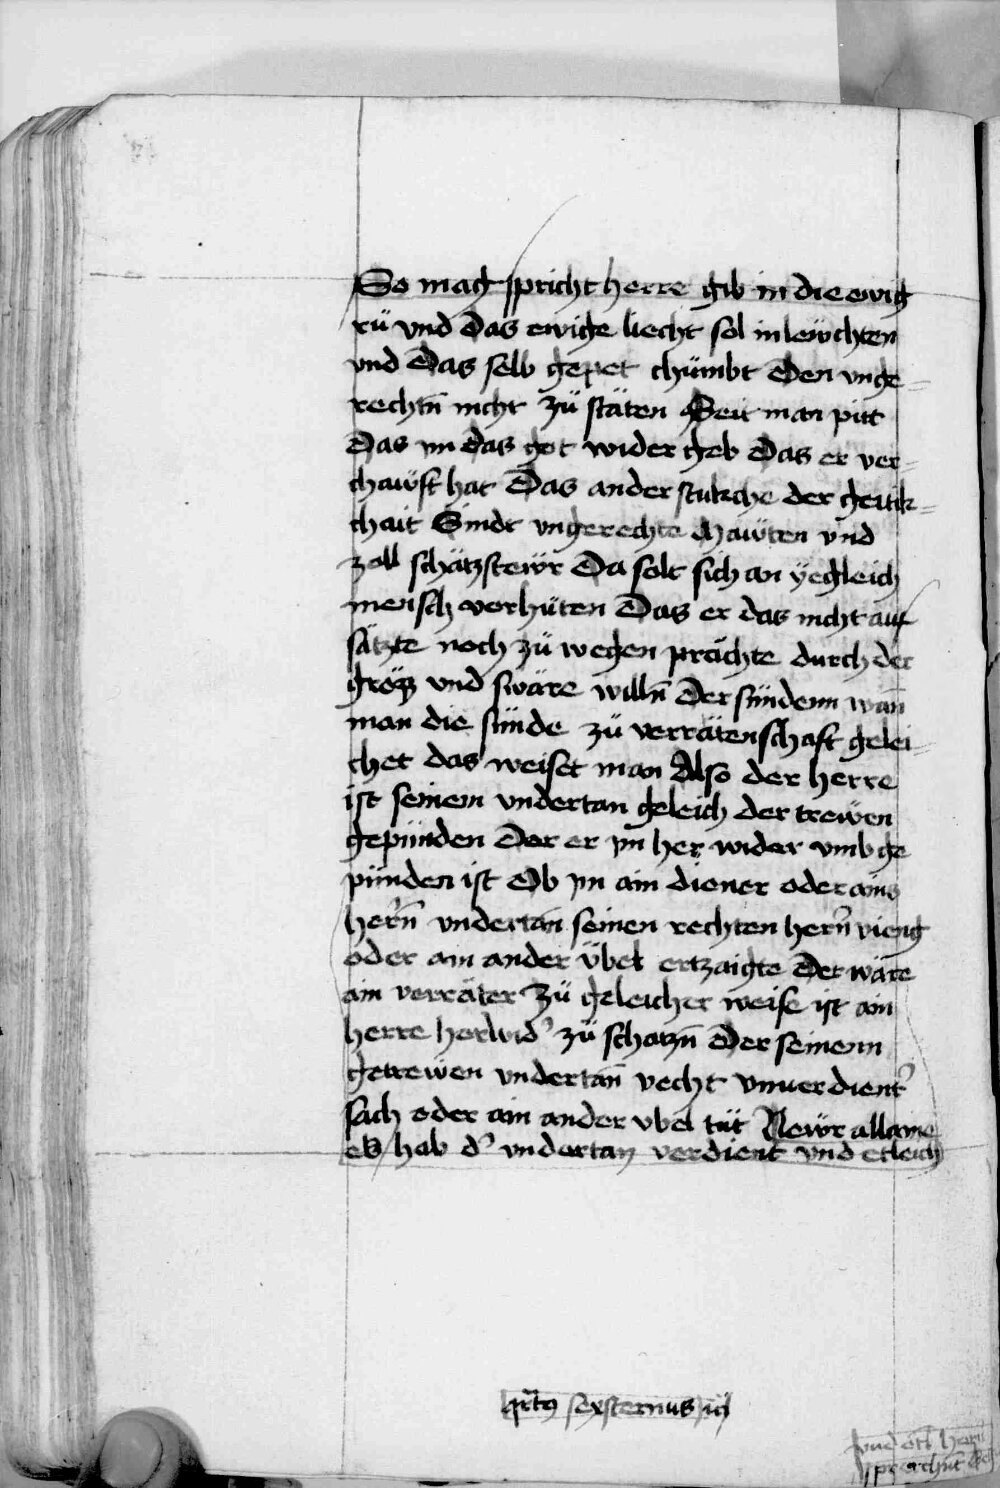 So mag spricht herre gib in die ewig
rü vnd das ewige liecht sol in lewchten
vnd das selb gepet chümbt den vnge-
rechtn̄ nicht zü stäten Seit man pitt
das im das got wider geb das er ver-
chawft hat Das ander stukche der geitik-
chait Sindt vngerechte Mawten vnd
zoll schätzstewr Da solt sich an yegleich
mensch verhüten Das er das nicht auf
sätzte noch zü wegen prächte durch der
grözz vnd swäre willn̄ Der sündenn wan̄
man die sünde zü verrätenschaft gelei-
chet das weiset man Also der herre
ist seinem vndertan geleich der trewen
gepünden Der er ym her wider vmb ge
pünden ist Ob ym ain diener oder ains
hern̄ vndertan seinen rechten hern̄ vieng
oder ain ander übel ertzaigte Der wäre
ain verräter Zü geleicher weise ist ain
herre herwid' zü schatzn̄ Der seinenn
getrewen vndertan̄ vecht vnuerdient'
sach oder ain ander vbel tüt Newr allaine
ez hab d' vndertan verdient vnd etleich
sexsternus
vnd etl hern